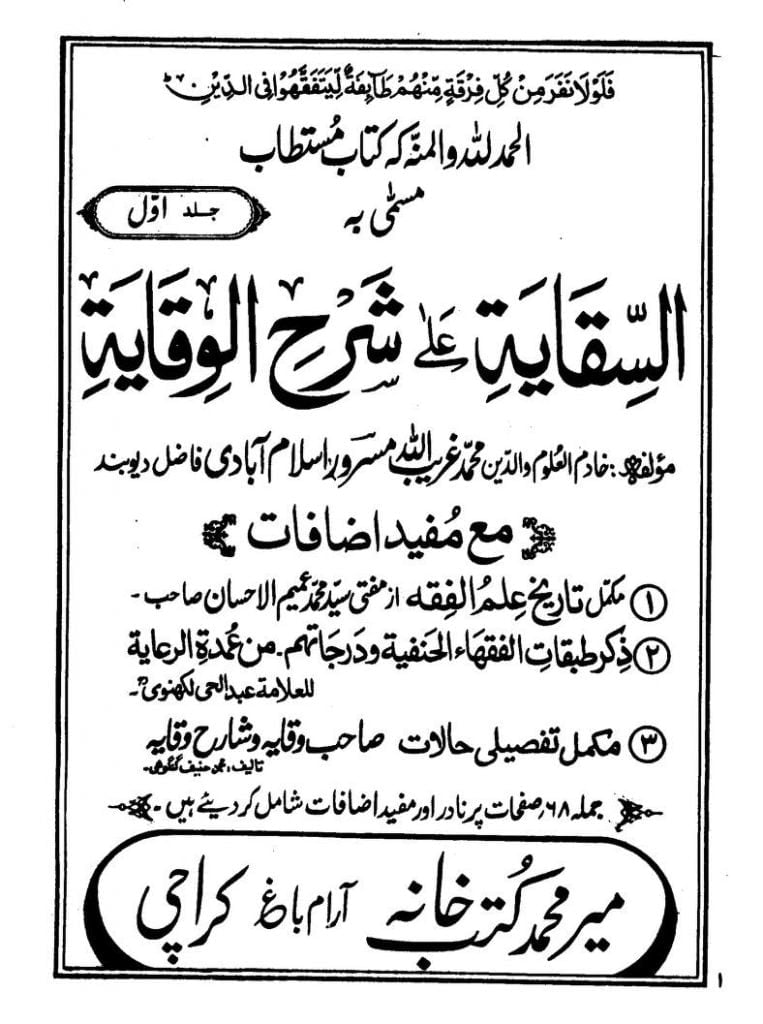 فَلَوْلَا نَفَرَ مِنْ كُلِّ فِرْقَةٍ مِّنْهُمْ طَآئِفَةٌ لِّيَتَفَقَّهُوْا فِي الدِّيْنِ
الحمد للہ والمنہ کہ کتاب مُستطاب
مسمّٰی بہ
جلد اوّل
السِّقَايَةِ عَلٰى شَرْحِ الْوِقَايَةِ
مؤلفہ: خادم العلوم والدین محمّد غریب اللہ مسرور اسلام آبادی فاضل دیوبند
مع مُفید اضافات
① مکمّل تاریخ عِلمُ الفِقہ از مفتی سیّد محمّد عمیم الاحسان صاحب۔
② ذِکر طبقاتِ الفقهاء الحَنفية ودَرجَاتهم۔ من عُمدَةِ الرعاية
للعلامة عبد الحی لکھنویؒ۔
③ مکمل تفصیلی حالات صاحب وقایہ وشارح وقایہ
تالیف: محمد حنیف گنگوہی۔
جملہ ۶۸؍ صفحات پر نادر اور مفید اضافات شامل کر دیئے ہیں۔
میر محمد کُتب خانہ آرام باغ کراچی
۱